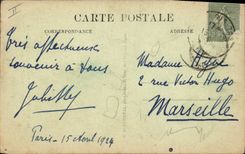 II
CARTE POSTALE
CORRESPONDANCE
ADRESSE
Très affectueux
souvenir à tous
Juliette
Paris - 15 Avril 1924
Madame
2 rue Victor Hugo
Marseille